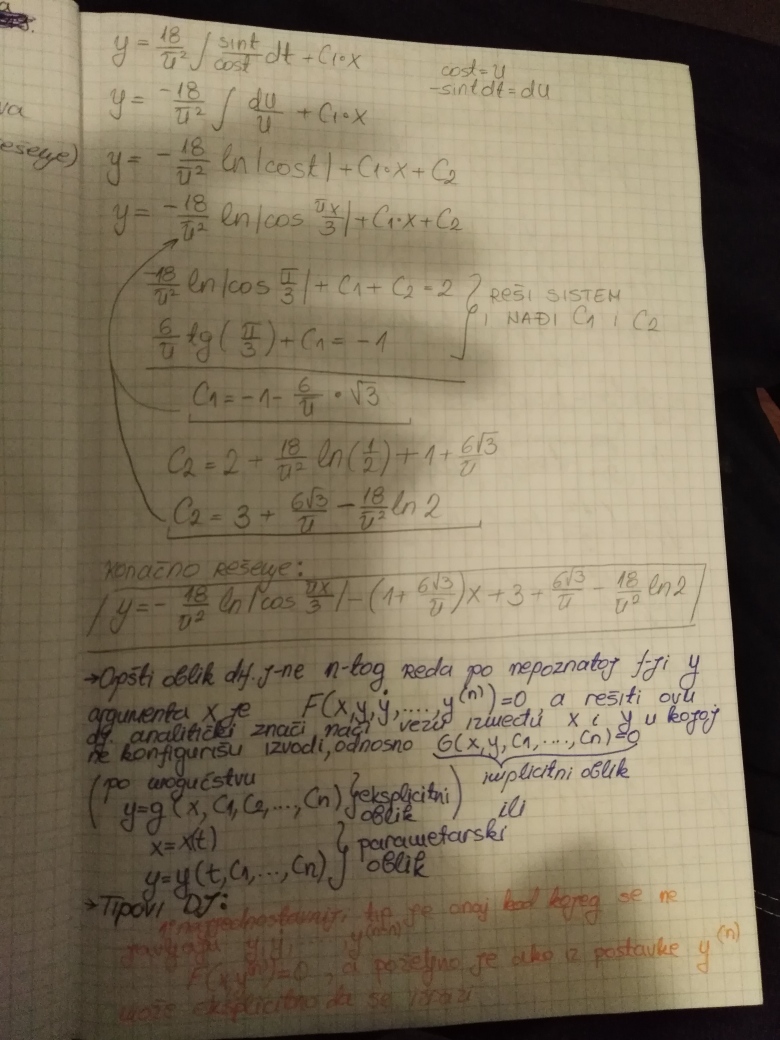 va
ešenje)
y = 18/π² ∫ sint/cost dt + C₁·x
cost = u
-sint dt = du
y = -18/π² ∫ du/u + C₁·x
y = -18/π² ln|cost| + C₁·x + C₂
y = -18/π² ln|cos πx/3| + C₁·x + C₂
-18/π² ln|cos π/3| + C₁ + C₂ = 2
REŠI SISTEM
6/π tg(π/3) + C₁ = -1
I NAĐI C₁ I C₂
C₁ = -1 - 6/π · √3
C₂ = 2 + 18/π² ln(1/2) + 1 + 6√3/π
C₂ = 3 + 6√3/π - 18/π² ln 2
KONAČNO REŠENJE:
y = - 18/π² ln|cos πx/3| - (1 + 6√3/π)x + 3 + 6√3/π - 18/π² ln 2
→Opšti oblik dif. j-ne n-tog reda po nepoznatoj f-ji y
argumenta x je F(x,y,y',...,y⁽ⁿ⁾)=0, a rešiti ovu
dj. analitički znači naći vezu između x i y u kojoj
ne konfigurišu izvodi, odnosno G(x,y,C₁,...,Cn)=0
implicitni oblik
(po mogućstvu
y=g(x,C₁,C₂,...,Cn) } eksplicitni oblik)
ili
x=x(t)
y=y(t,C₁,...,Cn) } parametarski oblik
→Tipovi DJ:
1) najjednostavniji tip je onaj kod kojeg se ne
javljaju y,y',...,y⁽ⁿ⁻¹⁾
F(x,y⁽ⁿ⁾)=0, a poželjno je ako iz postavke y⁽ⁿ⁾
može eksplicitno da se izrazi